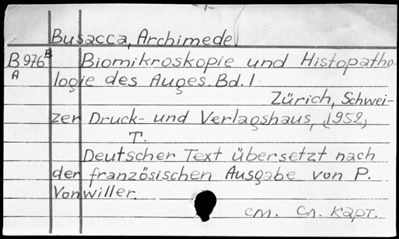 Busacca, Archimede
B 976 B Biomikroskopie und Histopatho-
A logie des Auges. Bd. I
Zürich, Schwei-
zer Druck- und Verlagshaus, 1952,
T.
Deutscher Text übersetzt nach
der französischen Ausgabe von P.
Vonwiller.
см. сл. карт.